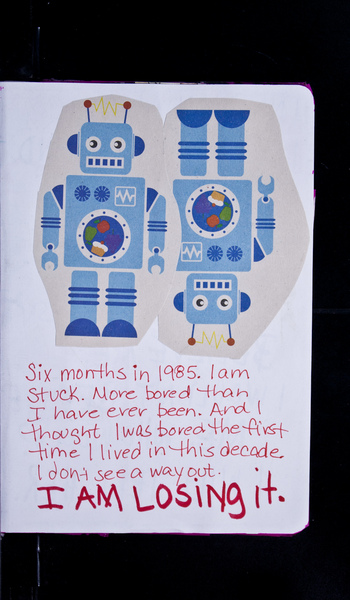 Six months in 1985. I am
Stuck. More bored than
I have ever been. And I
thought I was bored the first
time I lived in this decade.
I don't see a way out.
I AM LOSING it.